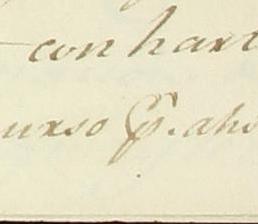 con hart
urso p. aho